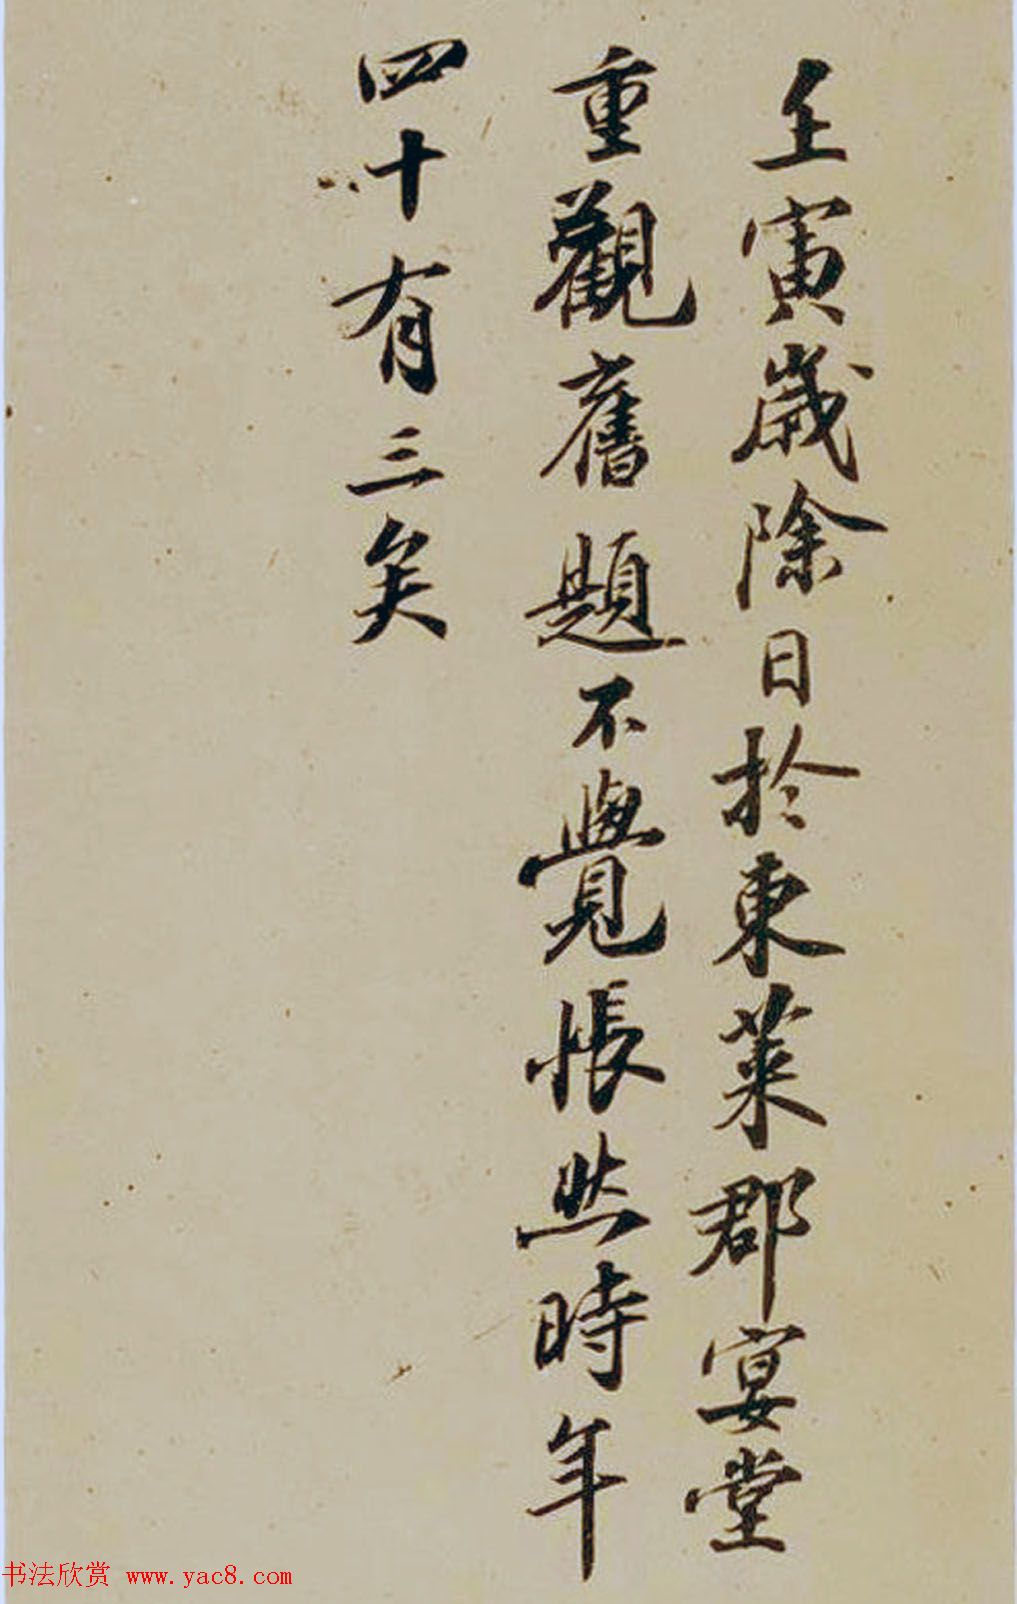 壬寅歲除日於東萊郡宴堂
重觀舊題不覺悵然時年
四十有三矣
书法欣赏 www.yac8.com